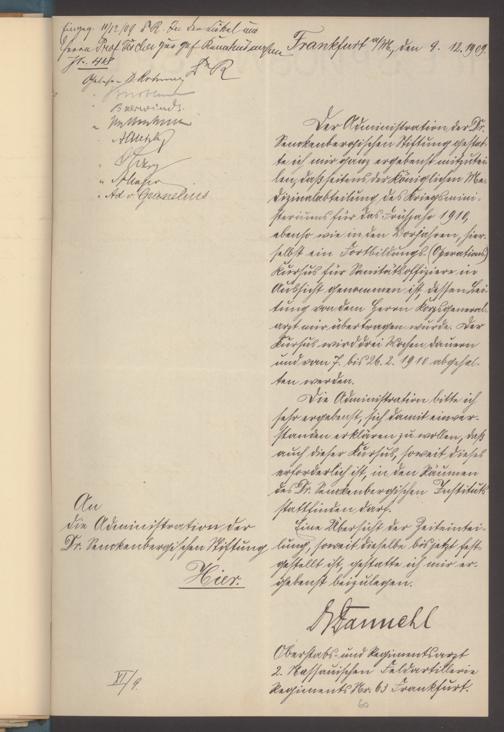 Eingeg. 11/12/09 D. R.
Herrn Prof.
Frankfurt a/M, den 9. 12. 1909.
Gelesen
Ad. v. Grunelius
Der Administration der Dr.
Senckenbergischen Stiftung gestat-
te ich mir ganz ergebenst mitzutei-
len, daß seitens der Königlichen Me-
dizinalabteilung des Kriegsmini-
steriums für das Frühjahr 1910,
ebenso wie in den Vorjahren, hier-
selbst ein Fortbildungs (Operations)
Kursus für Sanitätsoffiziere in
Aussicht genommen ist, dessen Lei-
tung von dem Herrn Korpsgeneral-
arzt mir übertragen wurde. Der
Kursus wird drei Wochen dauern
und vom 7. bis 26. 2. 1910 abgehal-
ten werden.
Die Administration bitte ich
sehr ergebenst, sich damit einver-
standen erklären zu wollen, daß
auch dieser Kursus, soweit dieses
erforderlich ist, in den Räumen
des Dr. Senckenbergischen Instituts
stattfinden darf.
Eine Übersicht der Zeiteintei-
lung, soweit dieselbe bis jetzt fest-
gestellt ist, gestatte ich mir er-
gebenst beizulegen.
An
die Administration der
Dr. Senckenbergischen Stiftung
Hier.
Oberstabs- und Regimentsarzt
2. Nassauischen Feldartillerie
Regiments Nr. 63 Frankfurt.
VI/9.
60